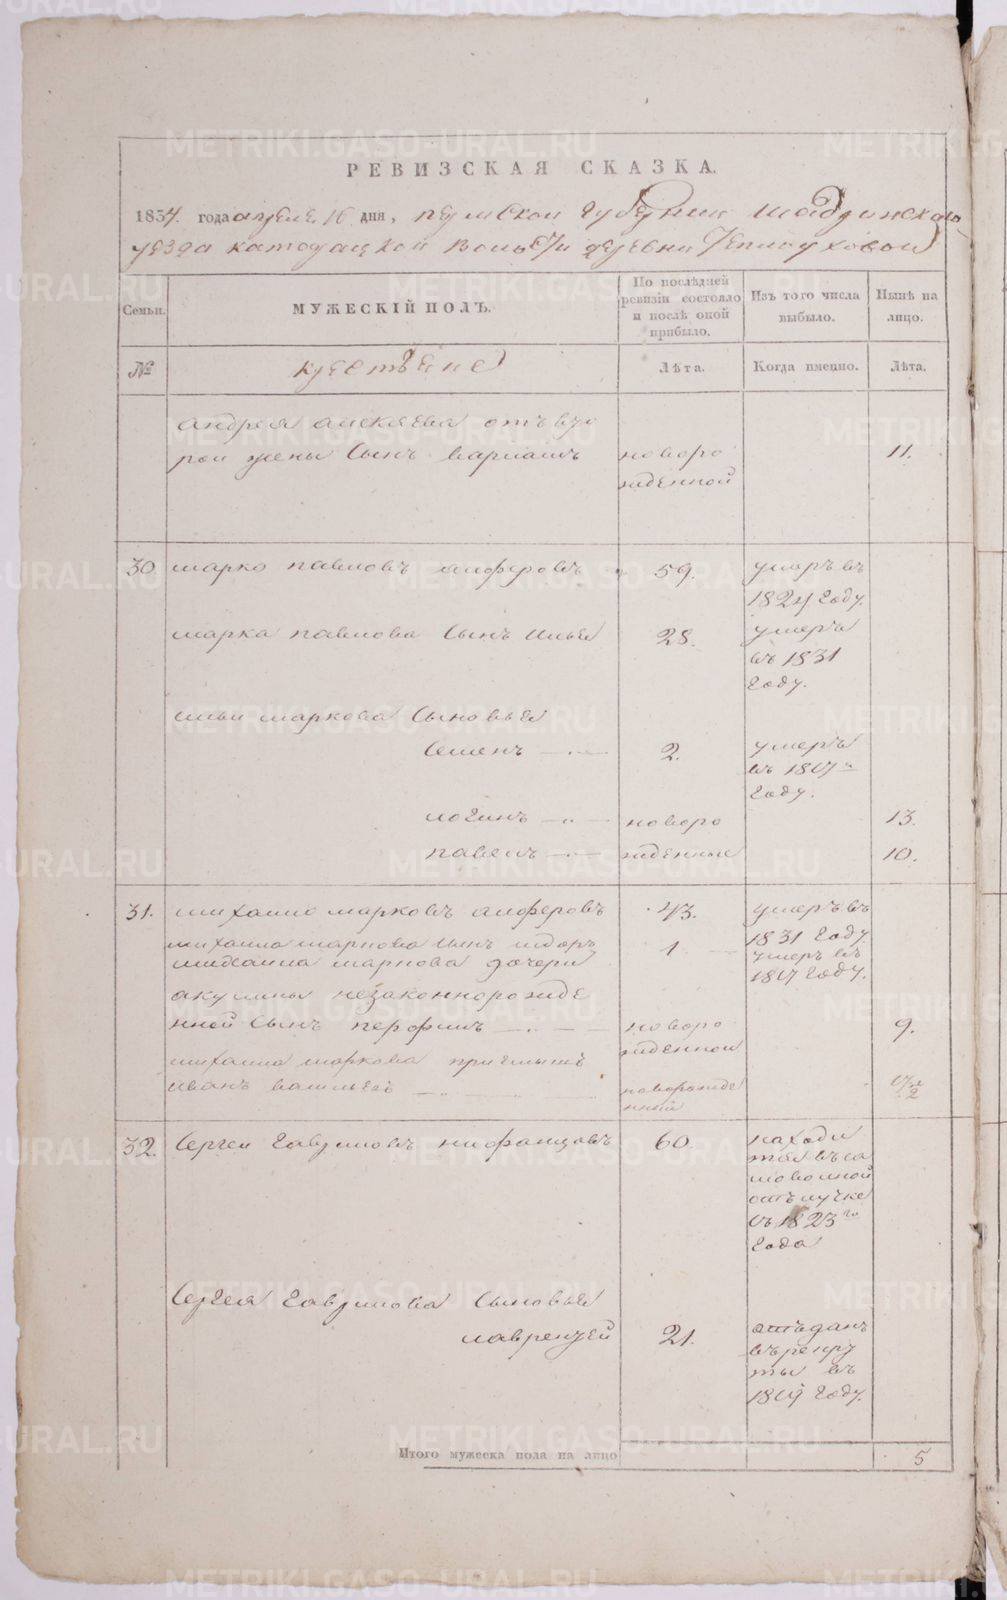 РЕВИЗСКАЯ СКАЗКА.
1834. года апреля 16 дня, пермской губернии шадринскаго
уезда катодацкой волости деревни
Семьи.
МУЖЕСКІЙ ПОЛЪ.
По послѣдней ревизіи состояло и послѣ оной прибыло.
Изъ того числа выбыло.
Нынѣ на лицо.
№
крестьяне
Лѣта.
Когда именно.
Лѣта.
андрея алексеева отъ вто
рой жены сынъ варламъ новоро 11.
жденной
30 марко павловъ алферовъ 59. умеръ въ
1824 году.
марка павлова сынъ илья 28. умеръ
въ 1831
году.
ильи маркова сыновья
семенъ 2. умеръ
въ 1817
году.
логинъ новоро 13.
павелъ жденные 10.
31. михаило марковъ алферовъ 43. умеръ въ
1831 году
михаила маркова сынъ 1 умеръ въ
михаила маркова дочери 1817 году.
акулины незаконнорожде
нной сынъ перфилъ новоро 9.
жденной
михаила маркова приемышъ
иванъ васильевъ новорожде
нный
32. сергеи гавриловъ 60 находи
тся въ са
моволной
отлучке
съ 1823го
года
Сергея гаврилова сыновья
лаврентей 21. отъданъ
въ рекру
ты въ
1819 году.
Итого мужеска пола на лицо 5
METRIKI.GASO-URAL.RU